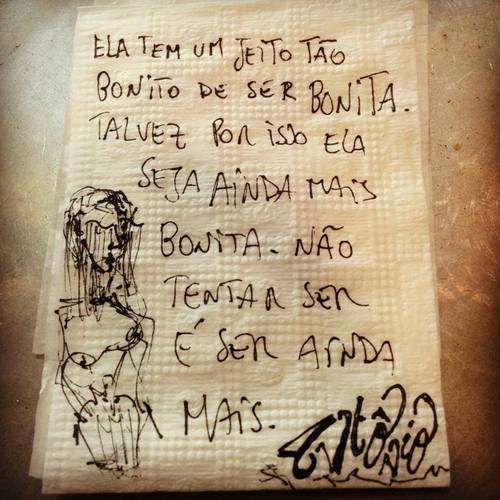 ELA TEM UM JEITO TÃO
BONITO DE SER BONITA.
TALVEZ POR ISSO ELA
SEJA AINDA MAIS
BONITA. NÃO
TENTAR SER
É SER AINDA
MAIS.
Antônio